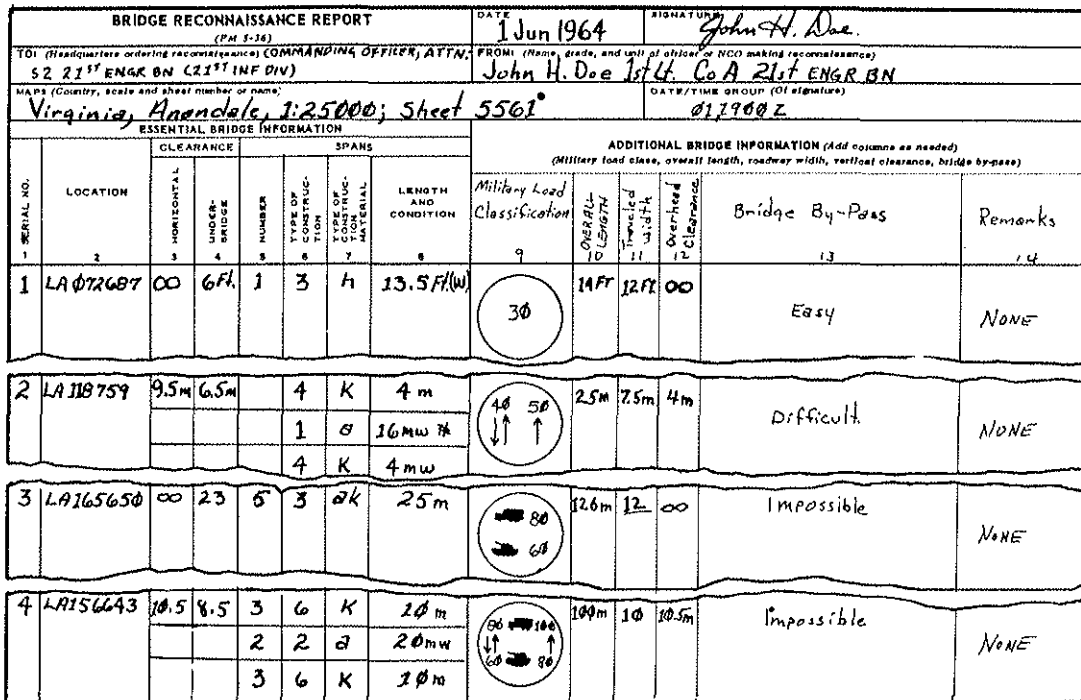 BRIDGE RECONNAISSANCE REPORT
(FM 5-36)
DATE
1 Jun 1964
SIGNATURE
John H. Doe.
TO: (Headquarters ordering reconnaissance) COMMANDING OFFICER, ATTN:
S2 21ST ENGR BN (21ST INF DIV)
FROM: (Name, grade, and unit of officer or NCO making reconnaissance)
John H. Doe 1st Lt. Co A 21st ENGR BN
MAPS (Country, scale and sheet number or name)
Virginia, Anandale, 1:25000; Sheet 5561
DATE/TIME GROUP (Of signature)
011900Z
ESSENTIAL BRIDGE INFORMATION
ADDITIONAL BRIDGE INFORMATION (Add columns as needed)
(Military load class, overall length, roadway width, vertical clearance, bridge by-pass)
CLEARANCE SPANS
SERIAL NO.
1
LOCATION
2
HORIZONTAL
3
UNDER-BRIDGE
4
NUMBER
5
TYPE OF CONSTRUC-TION
6
TYPE OF CONSTRUC-TION MATERIAL
7
LENGTH AND CONDITION
8
Military Load Classification
9
OVERALL LENGTH
10
Traveled width
11
Overhead Clearance
12
Bridge By-Pass
13
Remarks
14
1 LA Ø72687 ∞ 6Ft. 1 3 h 13.5 Ft.(W) 3Ø 14 FT 12 Ft ∞ Easy NONE
2 LA 118759 9.5m 6.5m 4 K 4 m 4Ø 5Ø ↓↑ ↑ 25m 7.5m 4m Difficult. NONE
1 a 16mw
4 K 4 mw
3 LA16565Ø ∞ 23 5 3 ak 25 m 8Ø 6Ø 126m 12 ∞ Impossible NONE
4 LA156643 1Ø.5 8.5 3 6 K 1Ø m 8Ø 1ØØ ↓↑ ↑ 6Ø 8Ø 1ØØm 1Ø 1Ø.5m Impossible NONE
2 2 a 2Ømw
3 6 K 1Ø m